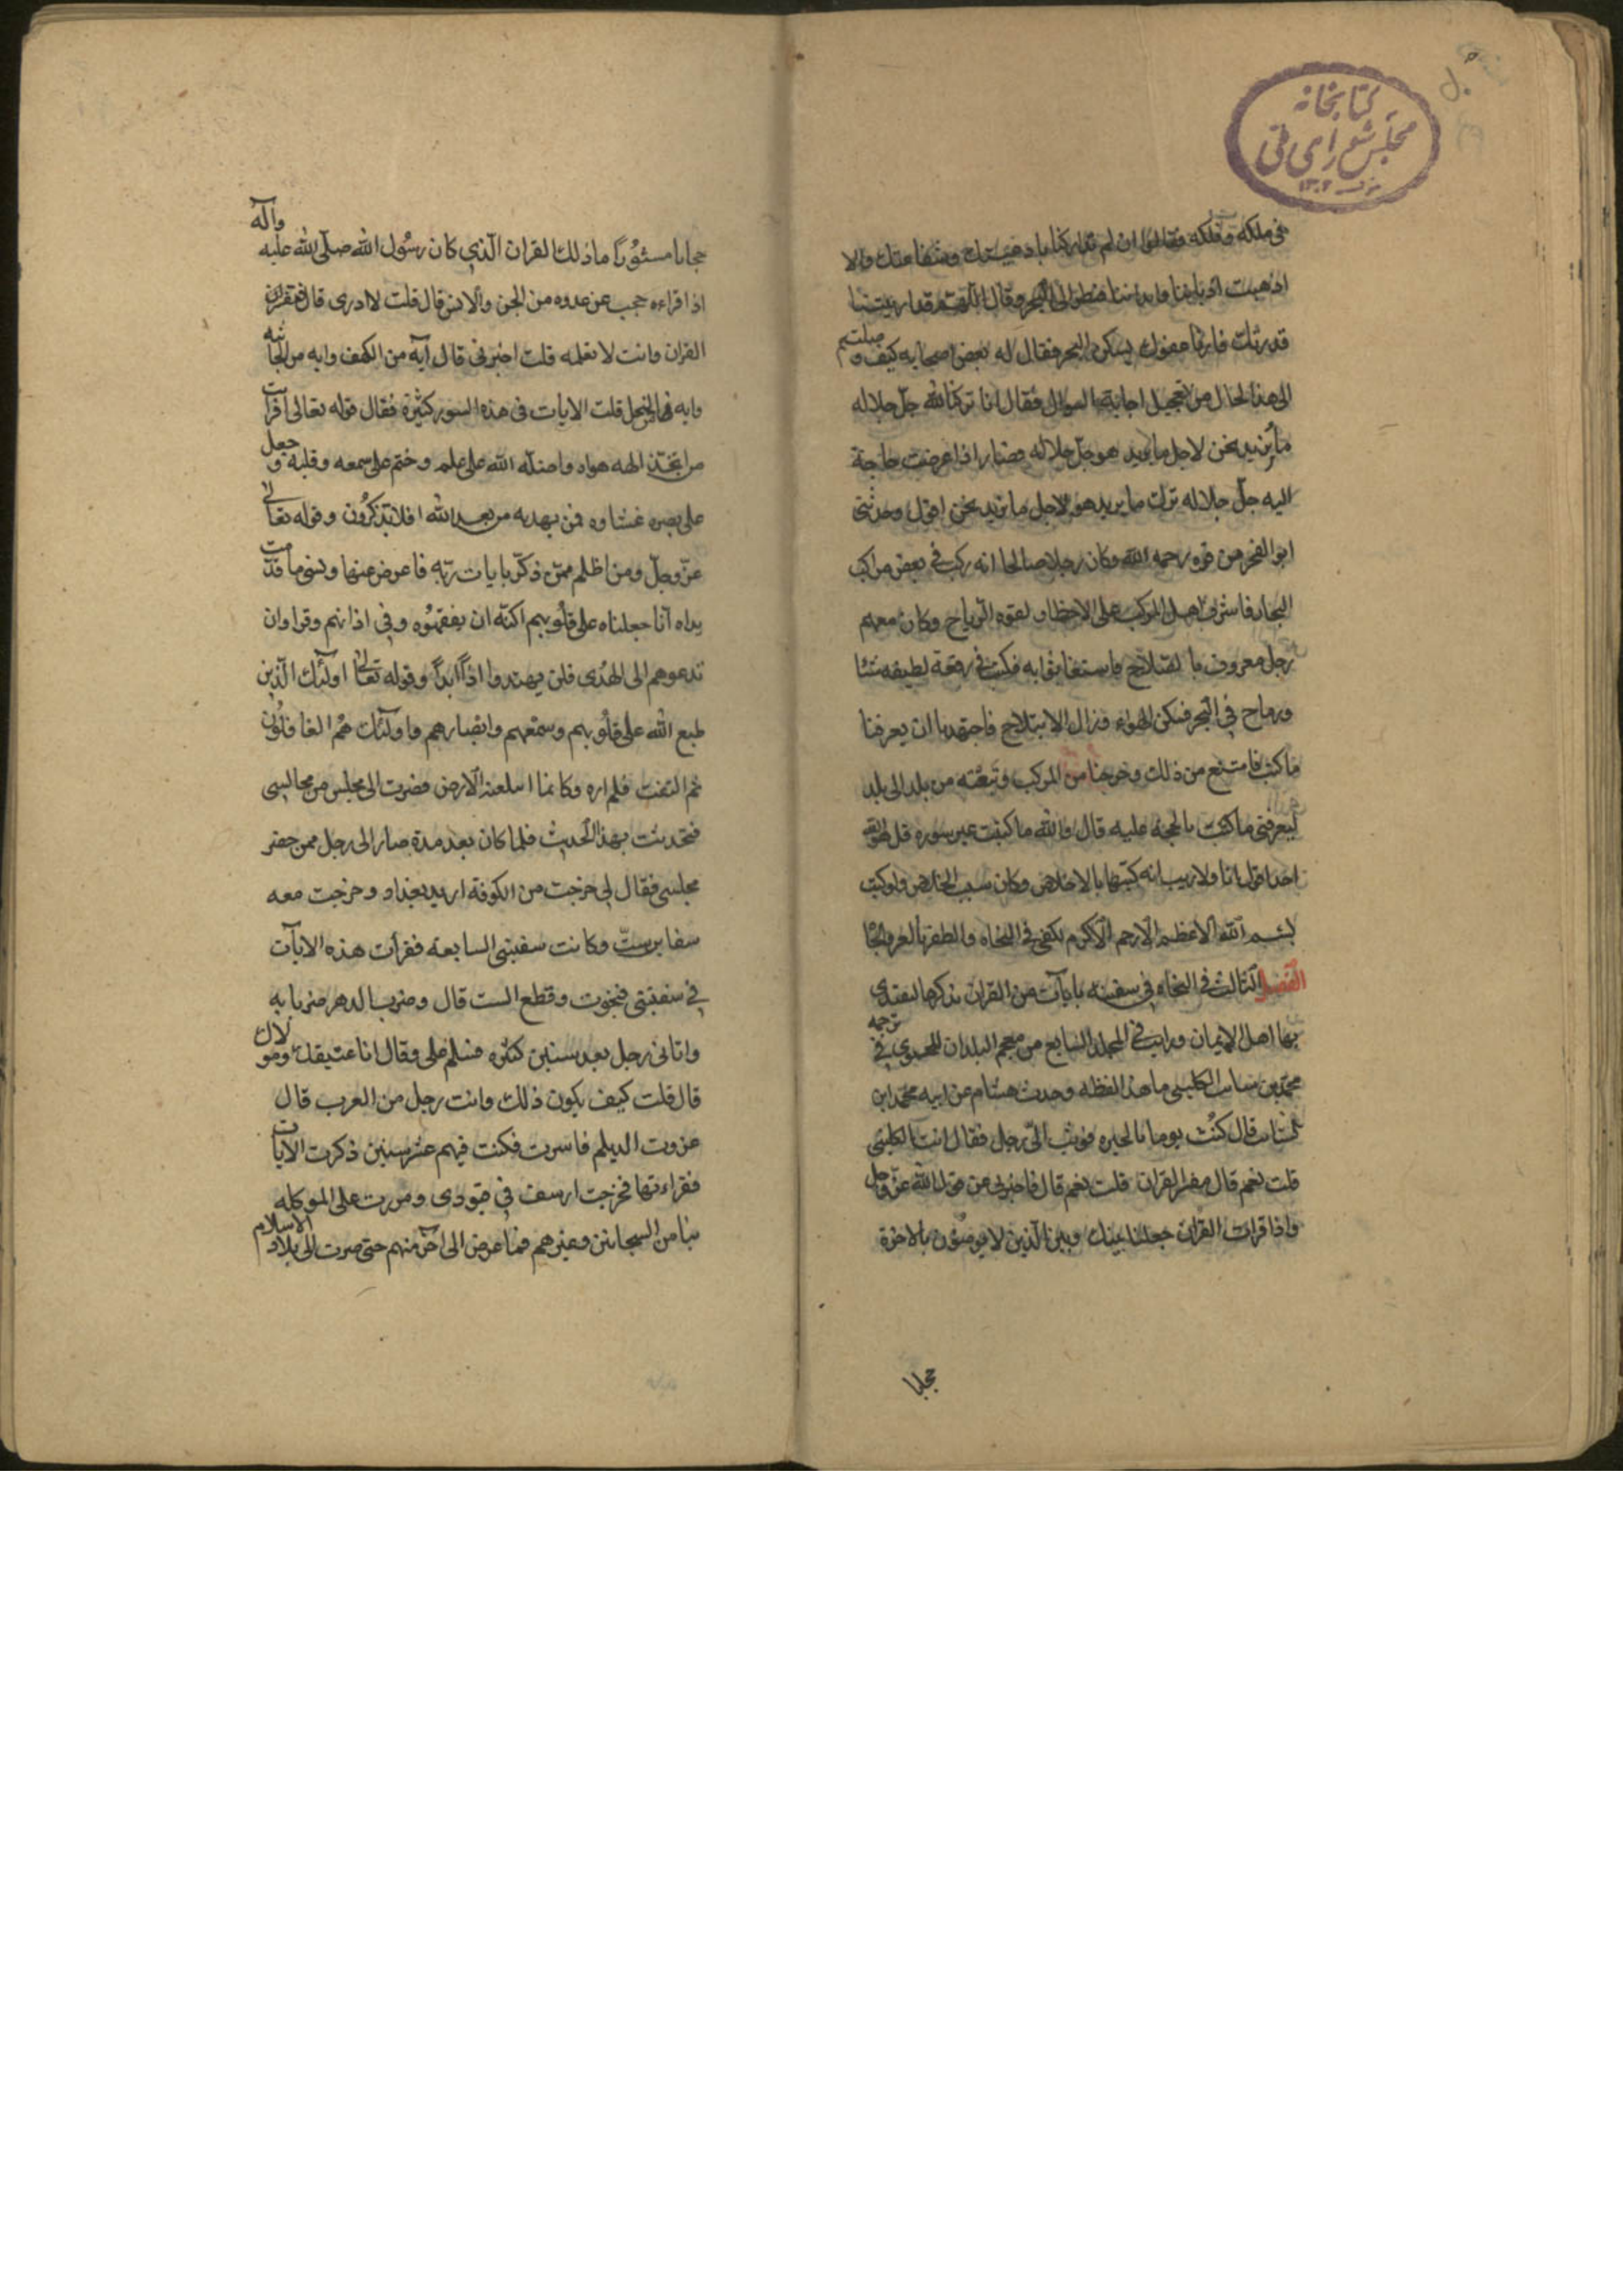 كتابخانه
مجلس شورای ملی
١٣٠٢
في ملكه وفلكه فقالوا ان لم تداركنا بادعيتك وشفاعتك والا
اذهبت اديننا وابداننا فنظر الى البحر وقال اللهم قد اريتنا
قدرتك فارنا عفوك فسكن البحر فقال له بعض اصحابه كيف وصلتم
الى هذا الحال من تعجيل اجابة السوال فقال انا تركنا لله جل جلاله
ما نريد نحن لاجل ما يريد هو جل جلاله فصار اذا عرضت حاجة
اليه جل جلاله ترك ما يريد هو لاجل ما نريد نحن اقول وحدثني
ابو الفخر من قوه رحمه الله وكان رجلا صالحا انه ركب في بعض مراكب
البحار فاشرف اهل المركب على الاخطار لقوه الرياح وكان معهم
رجل معروف بالصلاح فاستغاثوا به فكتب في رقعة لطيفه شيئا
ورماح في البحر فسكن الهواء وزال الابتلاح فاجتهدنا ان يعرفنا
ما كتب فامتنع من ذلك وخرجنا من المركب وتبعته من بلد الى بلد
ليعرفني ما كتب بالحجه عليه قال والله ما كتبت غير سوره قل هو الله
احد اقول انا ولا ريب انه كتبها بالاخلاص وكان سبب الخلاص ولو كتب
بسم الله الاعظم الارحم الاكرم لكفى في النجاه والظفر بالعز والجا
الفصل الثالث في النجاه في سفينه بايات من القران نذكرها ليقتدى
بها اهل الايمان ورايت في المجلد السابع من معجم البلدان للحموي في ترجمه
محمد بن سائب الكلبي ما هذا لفظه وحدث هشام عن ابيه محمد ابن
سائب قال كنت يوما بالحيره فوثب الي رجل فقال انت الكلبي
قلت نعم قال مفسر القران قلت نعم قال فاخبرني عن قول الله عز وجل
واذا قرات القران جعلنا بينك وبين الذين لا يومنون بالاخرة
حجابا
حجابا مستورا ما ذلك القران الذي كان رسول الله صلى الله عليه وآله
اذا قراءه حجب عن عدوه من الجن والانس قال قلت لا ادري قال فتفسر
القران وانت لا تعلمه قلت اخبرني قال آية من الكهف وايه من الجاثيه
وايه في النحل قلت الايات في هذه السور كثيرة فقال قوله تعالى افرايت
من اتخذ الهه هواه واضله الله على علم وختم على سمعه وقلبه وجعل
على بصره غشاوه فمن يهديه من بعد الله افلا تذكرون وقوله تعالى
عز وجل ومن اظلم ممن ذكر بايات ربه فاعرض عنها ونسى ما قدمت
يداه انا جعلناه على قلوبهم اكنه ان يفقهوه وفي اذانهم وقرا وان
تدعوهم الى الهدى فلن يهتدوا اذا ابدا وقوله تعالى اولئك الذين
طبع الله على قلوبهم وسمعهم وابصارهم واولئك هم الغافلون
ثم التفت فلم اره وكانما ابتلعته الارض فصرت الى مجلس من مجالسي
فتحدثت بهذا الحديث فلما كان بعد مدة صار الى رجل ممن حضر
مجلسي فقال لي خرجت من الكوفة اريد بغداد وخرجت معه
سفاين ست وكانت سفينتي السابعه فقرأت هذه الايآت
في سفينتي فنجوت وقطع الست قال وضرب الدهر ضربانه
واتاني رجل بعد سنين كثره فسلم على وقال انا عتيقك ومولاك
قال قلت كيف يكون ذلك وانت رجل من العرب قال
غزوت الديلم فاسرت فكنت فيهم عشر سنين ذكرت الايات
فقراءتها فخرجت ارسف في قيودى ومررت على الموكله
بنا من السجانين وغيرهم فما عرض الى احد منهم حتى صرت الى بلاد الاسلام